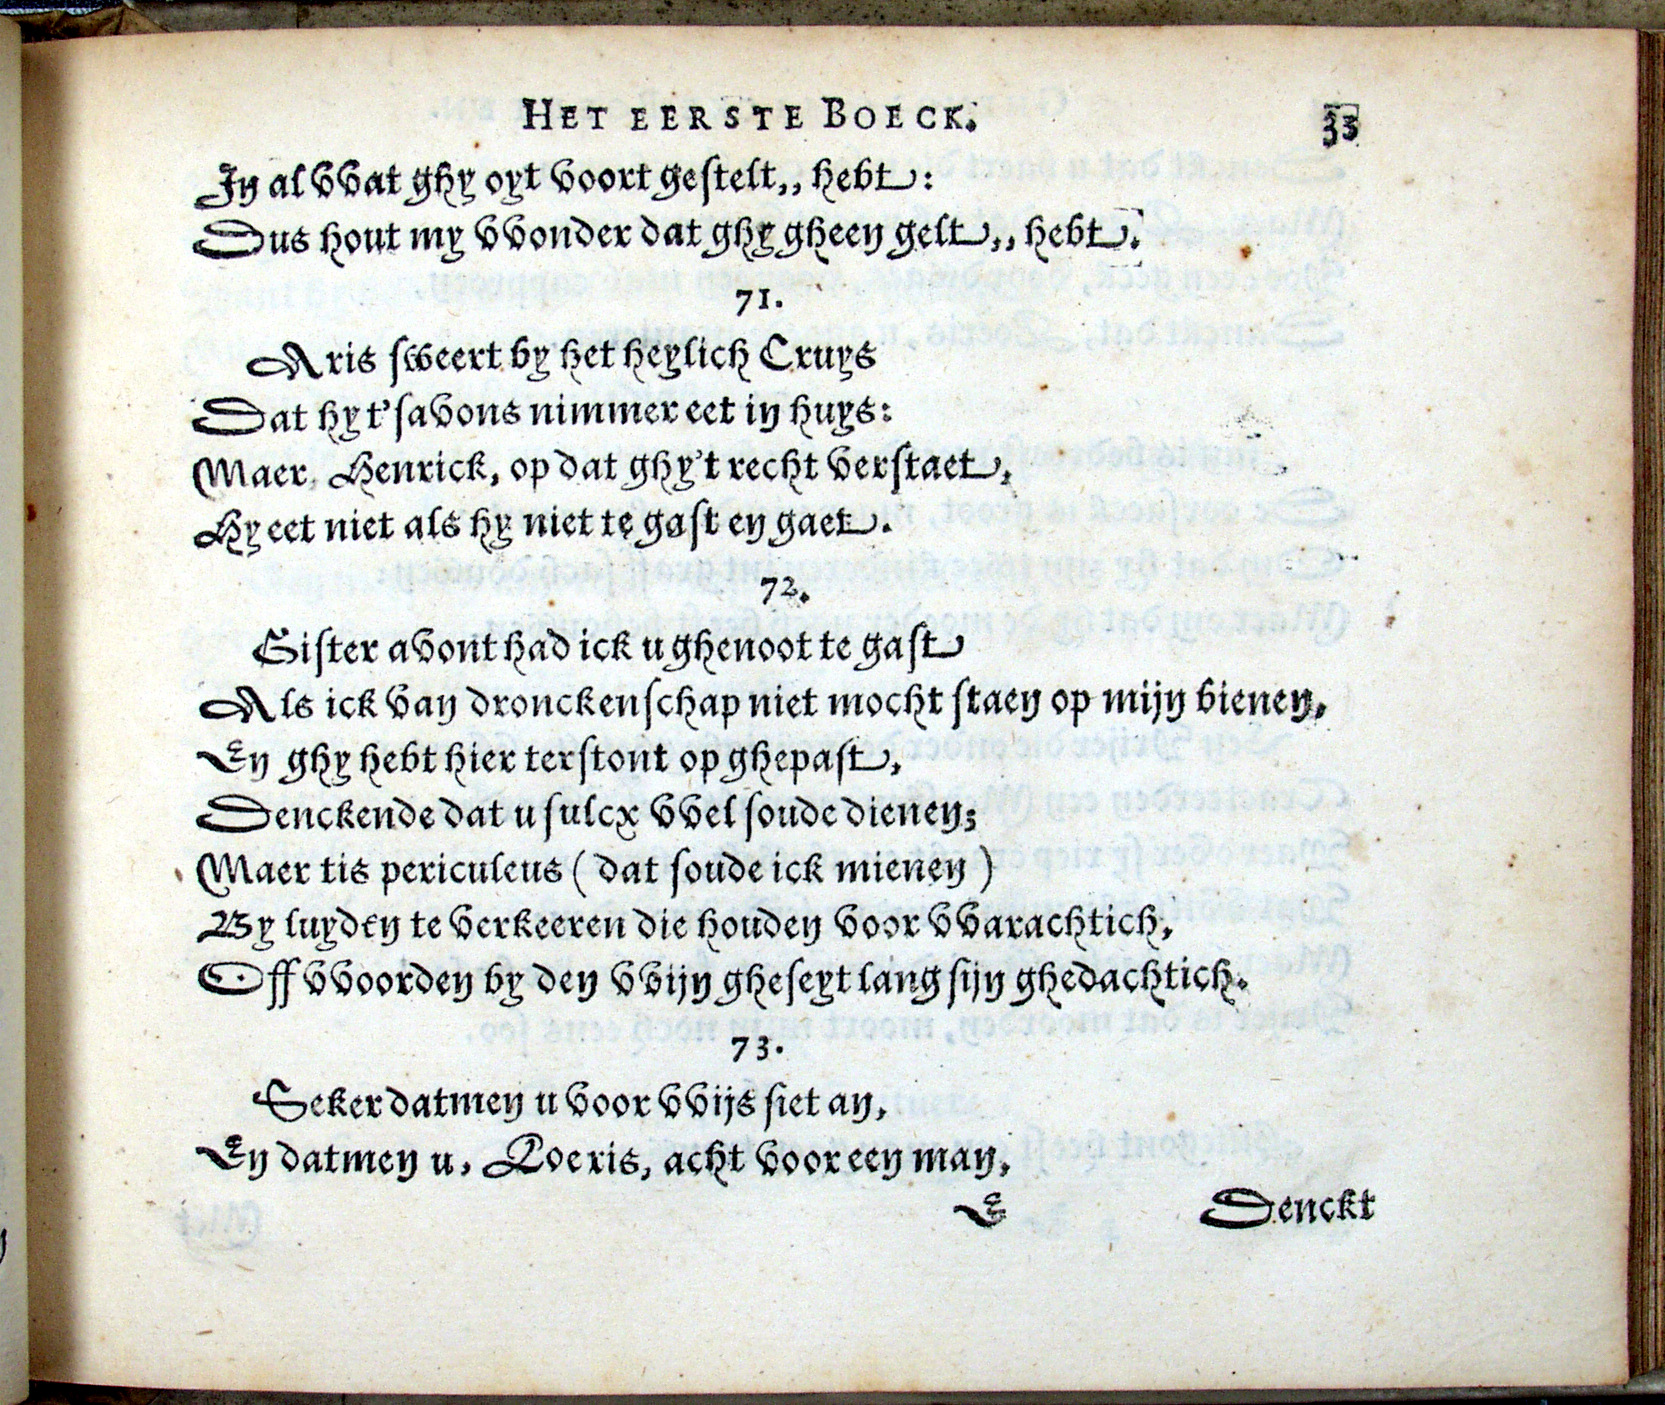 HET EERSTE BOECK. 33
In al vvat ghy oyt voort gestelt,, hebt:
Dus hout my vvonder dat ghy gheen gelt,, hebt.
71.
Aris sweert by het heylich Cruys
Dat hy t'savons nimmer eet in huys:
Maer, Henrick, op dat ghy't recht verstaet,
Hy eet niet als hy niet te gast en gaet.
72.
Gister avont had ick u ghenoot te gast
Als ick van dronckenschap niet mocht staen op mijn bienen,
En ghy hebt hier terstont op ghepast,
Denckende dat u sulcx vvel soude dienen;
Maer tis periculeus ( dat soude ick mienen )
By luyden te verkeeren die houden voor vvarachtich,
Off vvoorden by den vvijn gheseyt lang sijn ghedachtich.
73.
Seker datmen u voor vvijs siet an,
En datmen u, Roeris, acht voor een man,
E Denckt